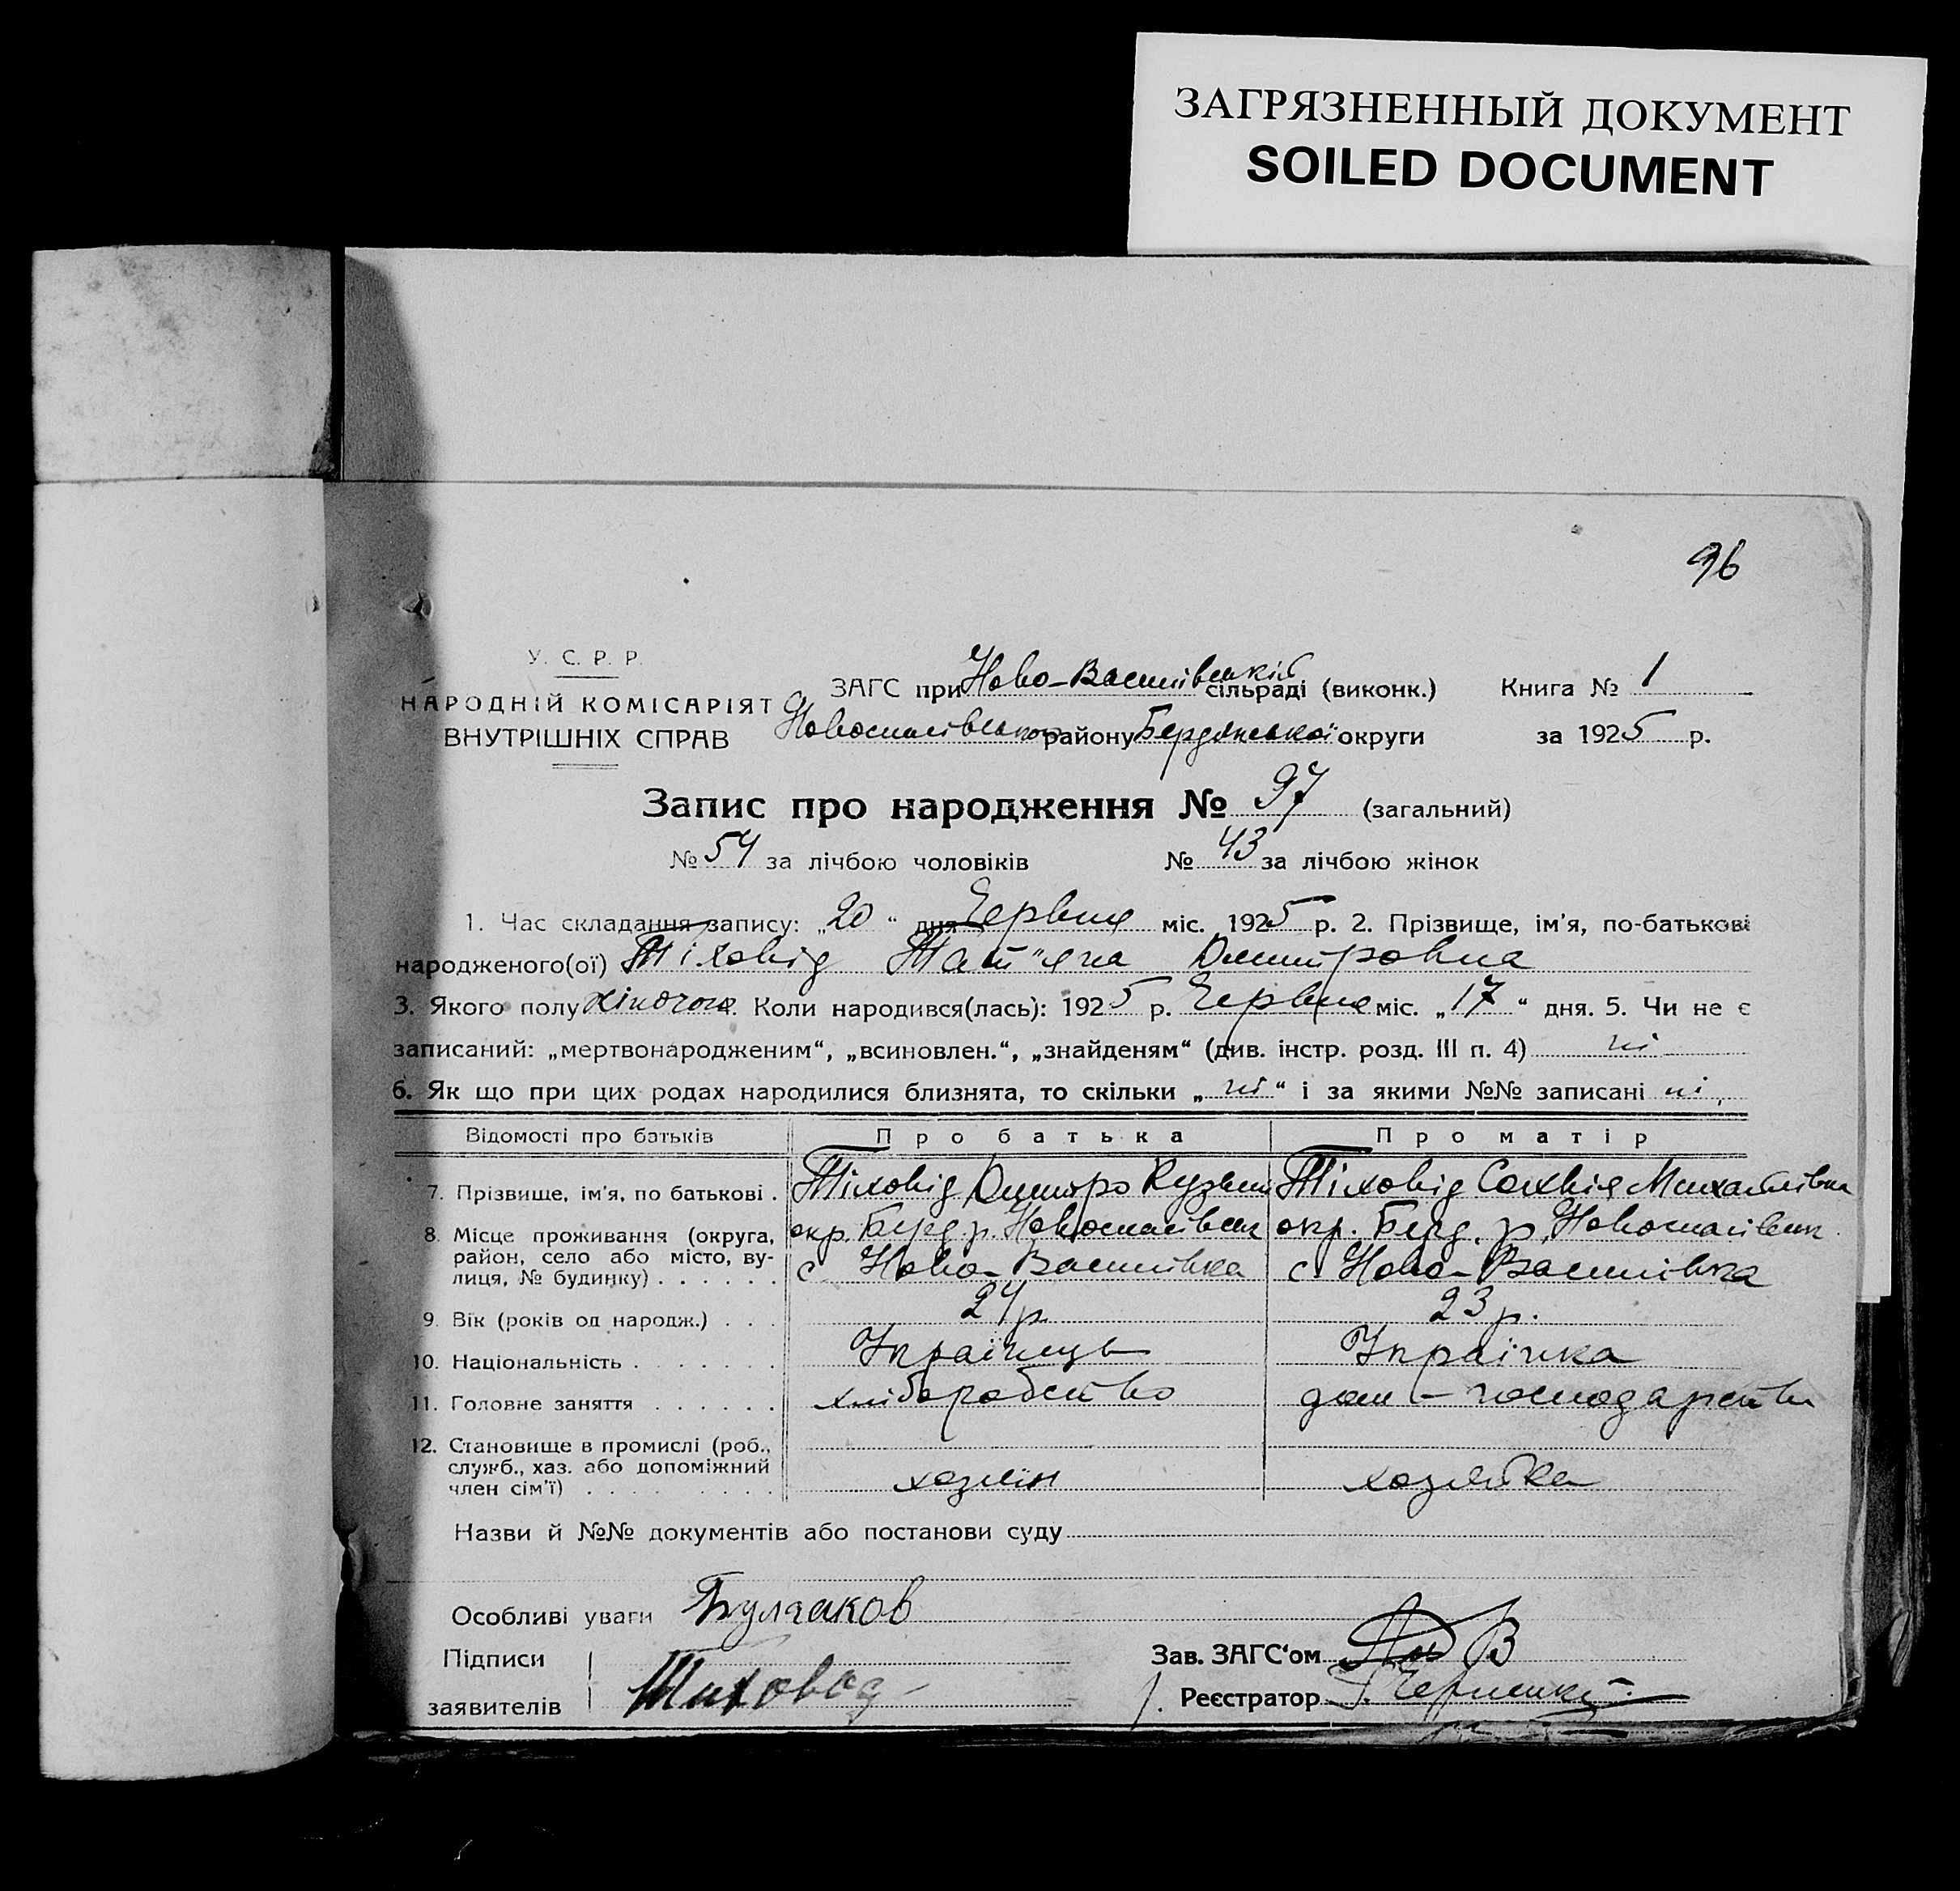 ЗАГРЯЗНЕННЫЙ ДОКУМЕНТ
SOILED DOCUMENT
96
У. С. Р. Р.
НАРОДНІЙ КОМІСАРІЯТ
ВНУТРІШНІХ СПРАВ
ЗАГС при Ново-Василівській сільраді (виконк.) Книга № 1
Новоспасівського району Бердянської округи за 1925 р.
Запис про народження № 97 (загальний)
№ 54 за лічбою чоловіків № 43 за лічбою жінок
1. Час складання запису: „20“ дня Червця міс. 1925 р. 2. Прізвище, ім'я, по-батькові
народженого(ої) Тіховід Тат"яна Дмитровна
3. Якого полу жіночого. Коли народився(лась): 1925 р. Червця міс. „17“ дня. 5. Чи не є
записаний: „мертвонародженим“, „всиновлен.“, „знайденям“ (див. інстр. розд. III п. 4) ні
6. Як що при цих родах народилися близнята, то скільки „ні“ і за якими №№ записані ні
Відомості про батьків Про батька Про матір
7. Прізвище, ім'я, по батькові . Тіховід Дмитро Кузьм Тіховід Софія Михайлівна
8. Місце проживання (округа, район, село або місто, вулиця, № будинку) . . . . . . окр. Берд. р. Новоспасівськ окр. Берд. р. Новоспасівськ
с. Ново-Василівка с. Ново-Василівка
9. Вік (років од народж.) . . . 24 р. 23 р.
10. Національність . . . . . . . Українець Українка
11. Головне заняття . . . . . . хліборобство дом-господарств
12. Становище в промислі (роб., служб., хаз. або допоміжний член сім'ї) . . . . . . . . . хозяїн хозяйка
Назви й №№ документів або постанови суду
Особливі уваги Булгаков
Підписи
заявителів Тиховод
Зав. ЗАГС'ом
Реєстратор